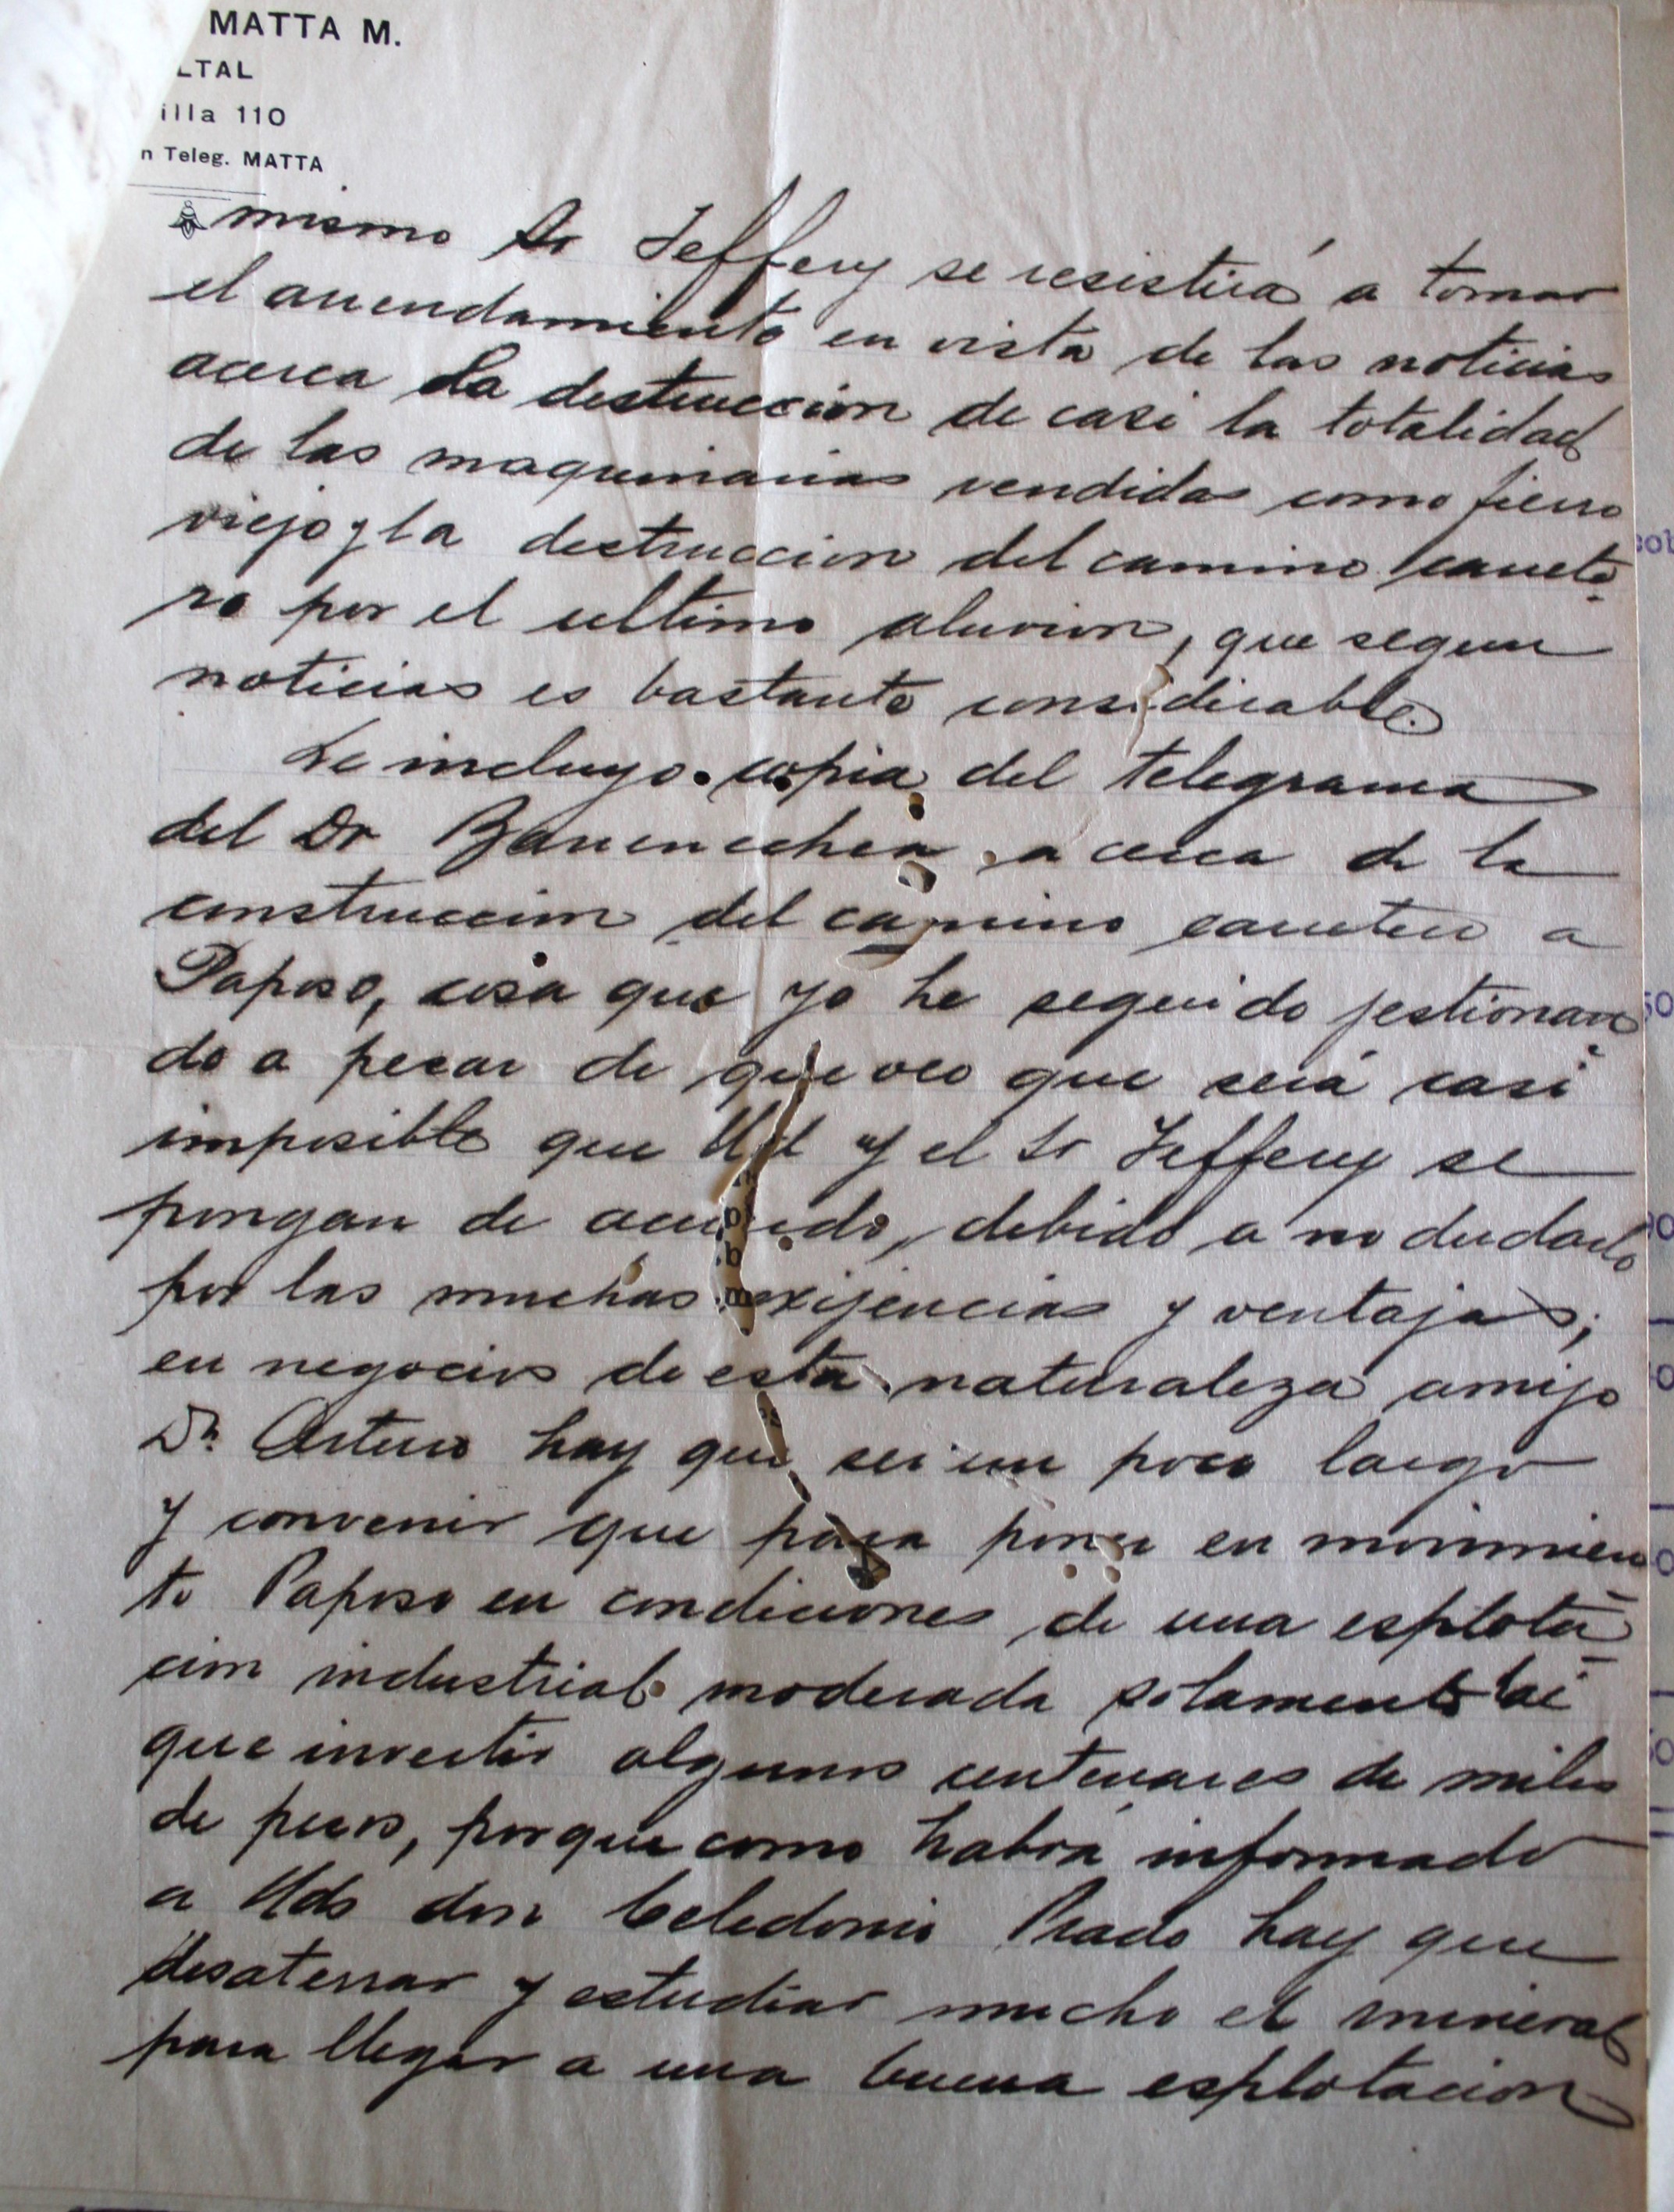 MATTA M.
LTAL
illa 110
n Teleg. MATTA
mismo Sr Jeffery se resistirá a tomar
el arrendamiento en vista de las noticias
acerca la destruccion de casi la totalidad
de las maquinarias vendidas como fierro
viejo y la destruccion del camino carrete
ro por el ultimo aluvion, que segun
noticias es bastante considerable.
Le incluyo copia del telegrama
del Dr Banenechea acerca de la
construccion del camino carretero a
Paposo, cosa que yo he seguido jestionan
do a pesar de que veo que será casi
imposible que Ud y el Sr Jeffery se
pongan de acuerdo, debido a no dudarlo
por las muchas exijencias y ventajas;
en negocios de esta naturaleza amigo
Dn Arturo hay que ser un poco largo
y convenir que para poner en movimien
to Paposo en condiciones de una esplota
cion industrial moderada solamente hai
que invertir algunos centenares de miles
de pesos, porque como habrá informado
a Uds don Celedonio Prado hay que
desaterrar y estudiar mucho el mineral
para llegar a una buena esplotacion
50